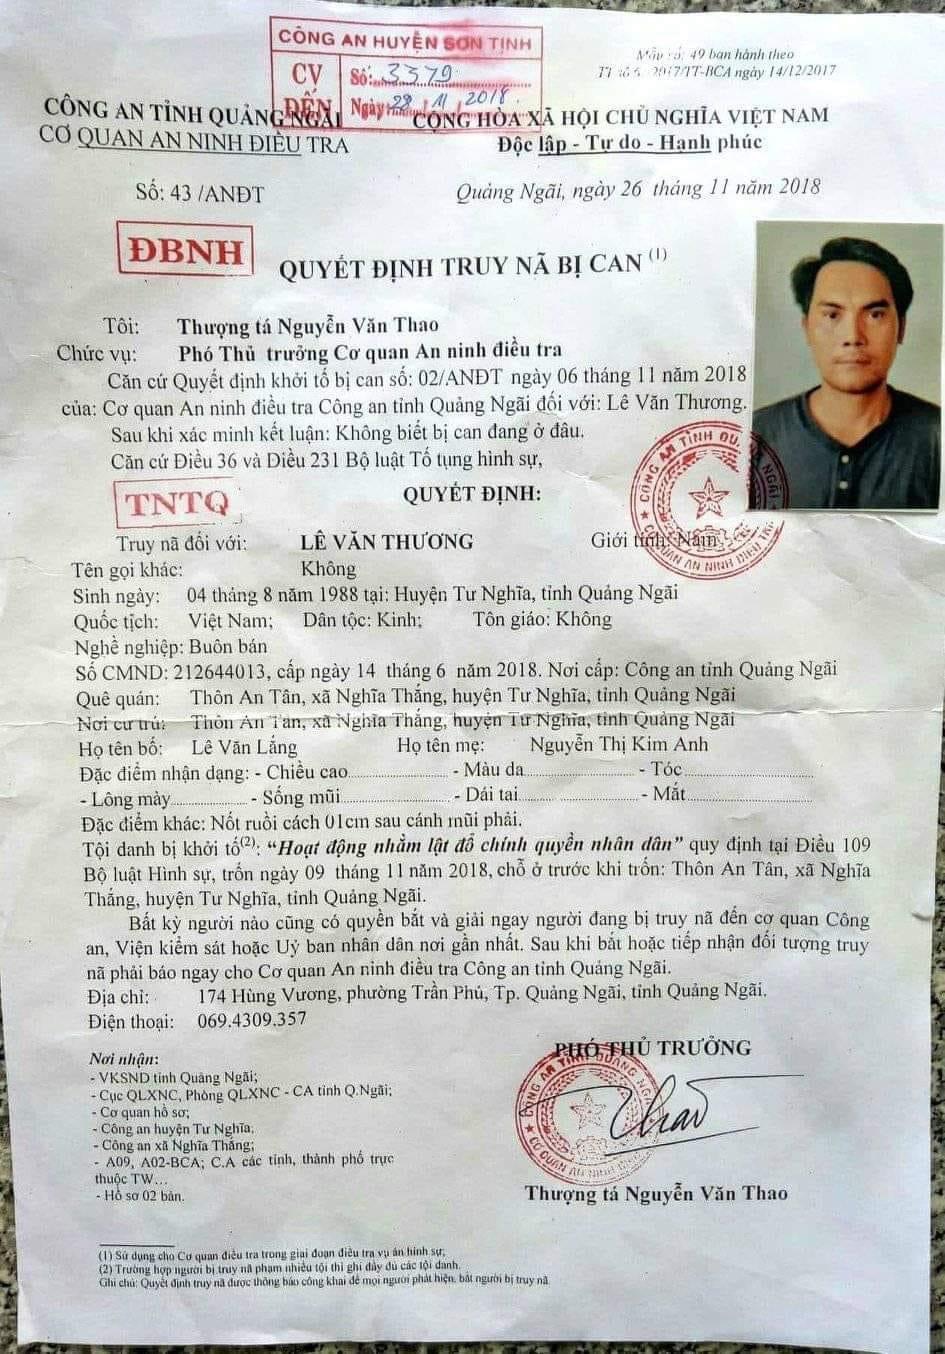 CÔNG AN HUYỆN SƠN TỊNH
CV ĐẾN
Số: 3379
Ngày 28/11/2018
Mẫu số: 49 ban hành theo
BCA ngày 14/12/2017
CÔNG AN TỈNH QUẢNG NGÃI
CƠ QUAN AN NINH ĐIỀU TRA
Số: 43 /ANĐT
CỘNG HÒA XÃ HỘI CHỦ NGHĨA VIỆT NAM
Độc lập - Tự do - Hạnh phúc
Quảng Ngãi, ngày 26 tháng 11 năm 2018
ĐBNH
QUYẾT ĐỊNH TRUY NÃ BỊ CAN (1)
Tôi: Thượng tá Nguyễn Văn Thao
Chức vụ: Phó Thủ trưởng Cơ quan An ninh điều tra
Căn cứ Quyết định khởi tố bị can số: 02/ANĐT ngày 06 tháng 11 năm 2018
của: Cơ quan An ninh điều tra Công an tỉnh Quảng Ngãi đối với: Lê Văn Thương.
Sau khi xác minh kết luận: Không biết bị can đang ở đâu.
Căn cứ Điều 36 và Điều 231 Bộ luật Tố tụng hình sự,
TNTQ
QUYẾT ĐỊNH:
CÔNG AN TỈNH QUẢNG NGÃI
CƠ QUAN AN NINH ĐIỀU TRA
Truy nã đối với: LÊ VĂN THƯƠNG Giới tính: Nam
Tên gọi khác: Không
Sinh ngày: 04 tháng 8 năm 1988 tại: Huyện Tư Nghĩa, tỉnh Quảng Ngãi
Quốc tịch: Việt Nam; Dân tộc: Kinh; Tôn giáo: Không
Nghề nghiệp: Buôn bán
Số CMND: 212644013, cấp ngày 14 tháng 6 năm 2018. Nơi cấp: Công an tỉnh Quảng Ngãi
Quê quán: Thôn An Tân, xã Nghĩa Thắng, huyện Tư Nghĩa, tỉnh Quảng Ngãi
Nơi cư trú: Thôn An Tân, xã Nghĩa Thắng, huyện Tư Nghĩa, tỉnh Quảng Ngãi
Họ tên bố: Lê Văn Lắng Họ tên mẹ: Nguyễn Thị Kim Anh
Đặc điểm nhận dạng: - Chiều cao.................... - Màu da.................... - Tóc....................
- Lông mày.................... - Sống mũi.................... - Dái tai.................... - Mắt....................
Đặc điểm khác: Nốt ruồi cách 01cm sau cánh mũi phải.
Tội danh bị khởi tố(2): “Hoạt động nhằm lật đổ chính quyền nhân dân” quy định tại Điều 109
Bộ luật Hình sự, trốn ngày 09 tháng 11 năm 2018, chỗ ở trước khi trốn: Thôn An Tân, xã Nghĩa
Thắng, huyện Tư Nghĩa, tỉnh Quảng Ngãi.
Bất kỳ người nào cũng có quyền bắt và giải ngay người đang bị truy nã đến cơ quan Công
an, Viện kiểm sát hoặc Uỷ ban nhân dân nơi gần nhất. Sau khi bắt hoặc tiếp nhận đối tượng truy
nã phải báo ngay cho Cơ quan An ninh điều tra Công an tỉnh Quảng Ngãi.
Địa chỉ: 174 Hùng Vương, phường Trần Phú, Tp. Quảng Ngãi, tỉnh Quảng Ngãi.
Điện thoại: 069.4309.357
Nơi nhận:
- VKSND tỉnh Quảng Ngãi;
- Cục QLXNC, Phòng QLXNC - CA tỉnh Q.Ngãi;
- Cơ quan hồ sơ;
- Công an huyện Tư Nghĩa;
- Công an xã Nghĩa Thắng;
- A09, A02-BCA; C.A các tỉnh, thành phố trực
thuộc TW...
- Hồ sơ 02 bản.
PHÓ THỦ TRƯỞNG
CÔNG AN TỈNH QUẢNG NGÃI
CƠ QUAN AN NINH ĐIỀU TRA
Thao
Thượng tá Nguyễn Văn Thao
(1) Sử dụng cho Cơ quan điều tra trong giai đoạn điều tra vụ án hình sự;
(2) Trường hợp người bị truy nã phạm nhiều tội thì ghi đầy đủ các tội danh.
Ghi chú: Quyết định truy nã được thông báo công khai để mọi người phát hiện, bắt người bị truy nã.